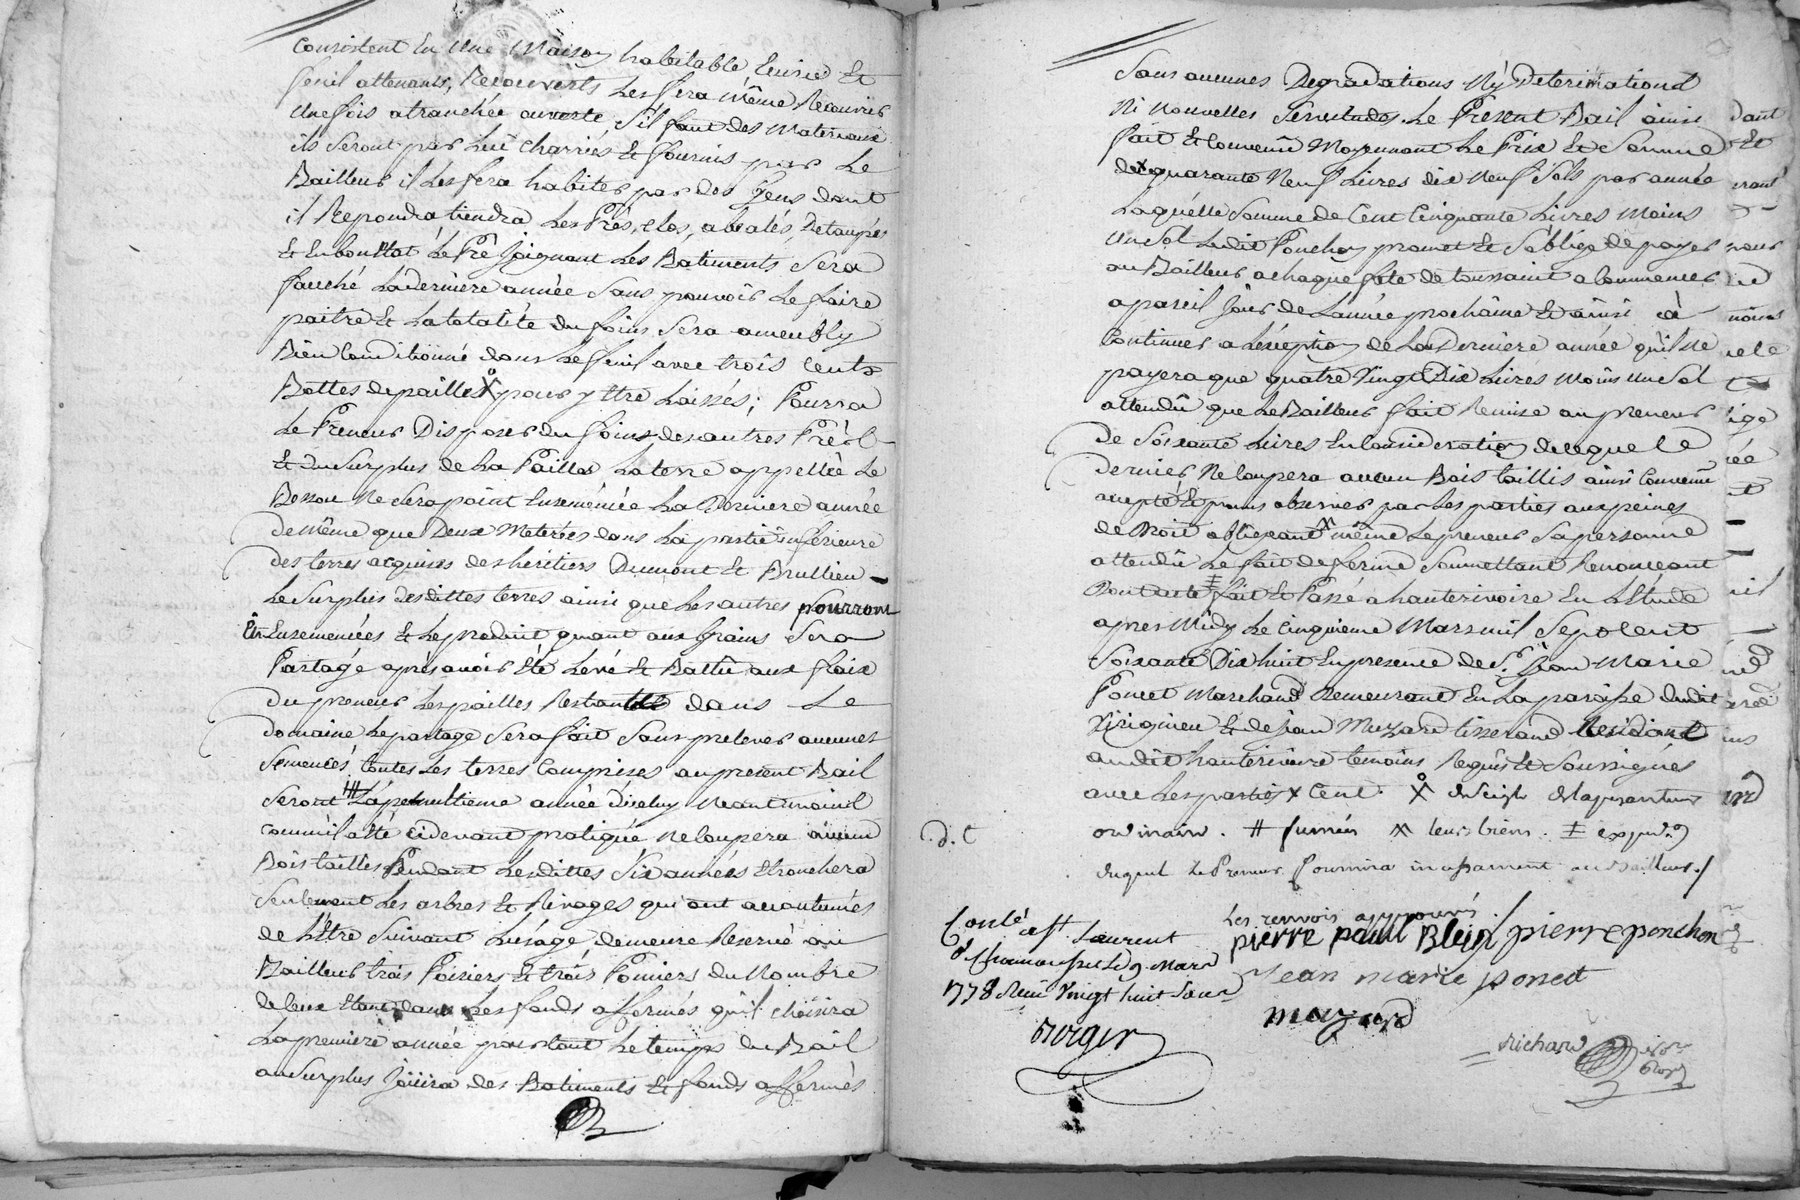 Consistent En Une Maison habitable Ecurie Et
fenil attenants, Recouverts Les fera même Recouvrir
Une fois a tranchée ouverte S'il faut des Materiaux
ils Seront par Lui Charriés Et fournis par Le
Bailleur il Les fera habiter par des Gens dont
il Repondra tiendra Les Prés, clos, Detaupés
Et En bon Etat Le Pré Joignant Les Batiments Sera
fauché La derniere année Sans pouvoir Le faire
paitre Et La totalité du foins Sera
Bien Conditionné dans Le fenil avec trois Cents
Bottes de paille pour y Etre Laissés; Pourra
Le Preneur Disposer du foins des autres Prés
Et du Surplus de La Paille La terre appellée Le
Ne Sera point Ensemencée La Derniere année
De Même que Deux Meterées dans La partie inferieure
Des terres acquises des héritiers Dumont Et Brullien
Le Surplus desdittes terres ainsi que Les autres pourront
Etre Ensemencées Et Le produit quant aux grains Sera
Partagé après avoir Eté Levé Et Battu aux fraix
Du preneur Les pailles Restantes dans Le
Domaine Le partage Sera fait Sans prelever aucunes
Semences toutes Les terres Comprises au present Bail
Seront # La penultieme année d'iceluy Neantmoins
comme il a Eté cidevant pratiqué Ne Coupera aucun
Bois taillis Pendant Lesdittes Six années Etronchera
Seulement Les arbres Et Rivages qui ont accoutumés
de L'Etre Suivant L'usage, demeure Reservé au
Bailleur trois Poiriers Et trois Pomiers du Nombre
de Ceux Etant dans Les fonds affermés qu'il choisira
La premiere année pour tout Le temps du Bail
au Surplus Jouira des Batiments Et fonds affermés
Sans aucunes Degradations Ny Deteriorations
Ni nouvelles Servitudes. Le Present Bail ainsi
fait Et Convenu Moyennant Le Prix Et Somme
de x quarante Neuf Livres dix Neuf Sols par année
Laquelle Somme de Cent Cinquante Livres Moins
Un Sol Ledit Ponchon promet Et S'oblige de payer
au Bailleur a chaque fete de toussaint a Commencer
a pareil Jour de L'année prochaine Et ainsi a
Continuer a L'éxception de La Derniere année qu'il Ne
payera que quatre Vingt Dix Livres Moins Un Sol
attendû que Le Bailleur fait Remise au preneur
De Soixante Livres En Consideration de ce que Le
dernier Ne Coupera aucun Bois taillis ainsi Convenu
accepté Et promis observer par Les parties aux peines
de Droit obligeant même Le preneur Sa personne
attendû Le fait de ferme Soumettant Renonceant
Dont acte fait Et Passé a hauterivoire En L'Etude
apres Midy Le Cinquieme Mars mil Sept Cent
Soixante Dix huit En presence de Sr. Jean Marie
Poncet Marchand Demeurant En La paroisse dudit
Virigneu Et de Jean Mazard tisserand Residant
audit hauterivoire temoins Requis Et Soussignés
avec Les parties x Cent.
ordinaire. # fumées leurs biens.
duquel Le Preneur fournira incessament au Bailleur./
Les renvois approuvés
pierre paul Bleyn pierre ponchon
Jean marie poncet
mazard
Richard
d. C
Conlé a St Laurent
de Chamousset Le 9 Mars
1778 Reçu Vingt huit Sous
Berger